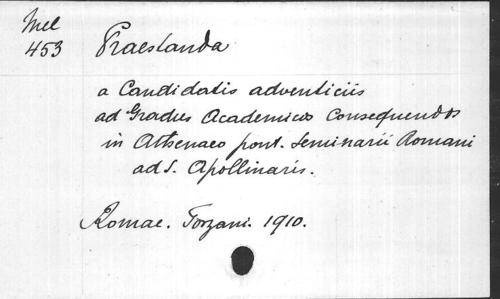 Mel
453
Praestanda
a Candidatis adventiciis
ad Gradus Academicos Consequendos
in Athenaeo pont. Seminarii Romani
ad S. Apollinaris.
Romae. Forzani. 1910.